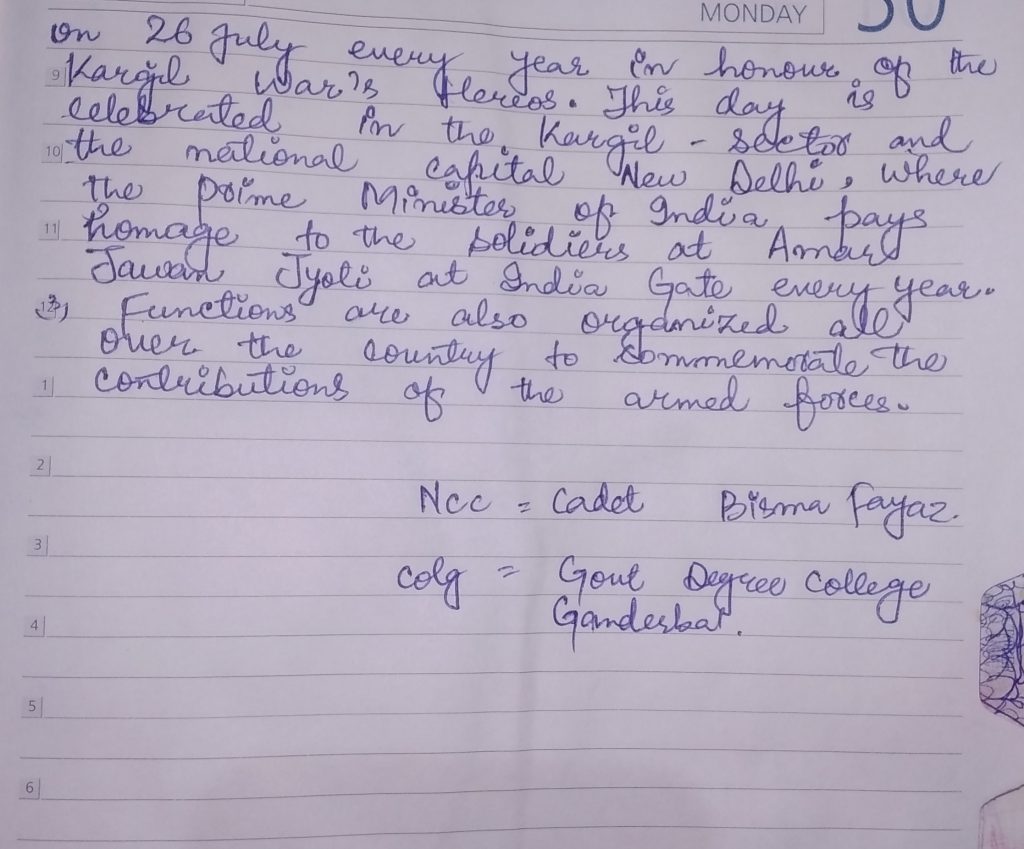 MONDAY 30
on 26 July every year in honour of the
9 Kargil War's Hereos. This day is
celebrated in the Kargil - sector and
10 the national capital New Delhi, where
the prime Minister of India pays
11 homage to the solidiers at Amar
Jawan Jyoti at India Gate every year.
Functions are also organized all
over the country to commemorate the
1 contributions of the armed forces.
2
Ncc = Cadet Bisma fayaz.
3
colg = Govt Degree College
4 Ganderbal.
5
6